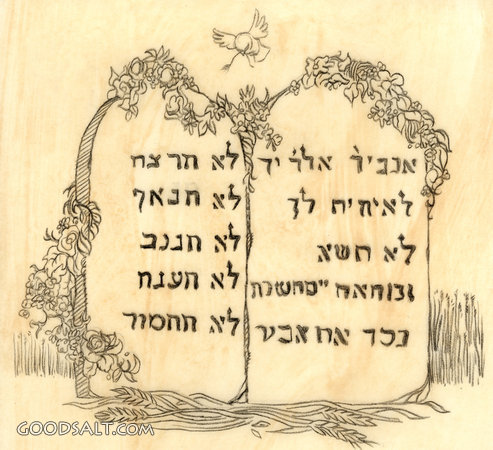 אנכי אלהיך
לא יהיה לך
לא תשא
השבת
כבד את אביך
לא תרצח
לא תנאף
לא תגנב
לא תענה
לא תחמוד
GOODSALT.COM